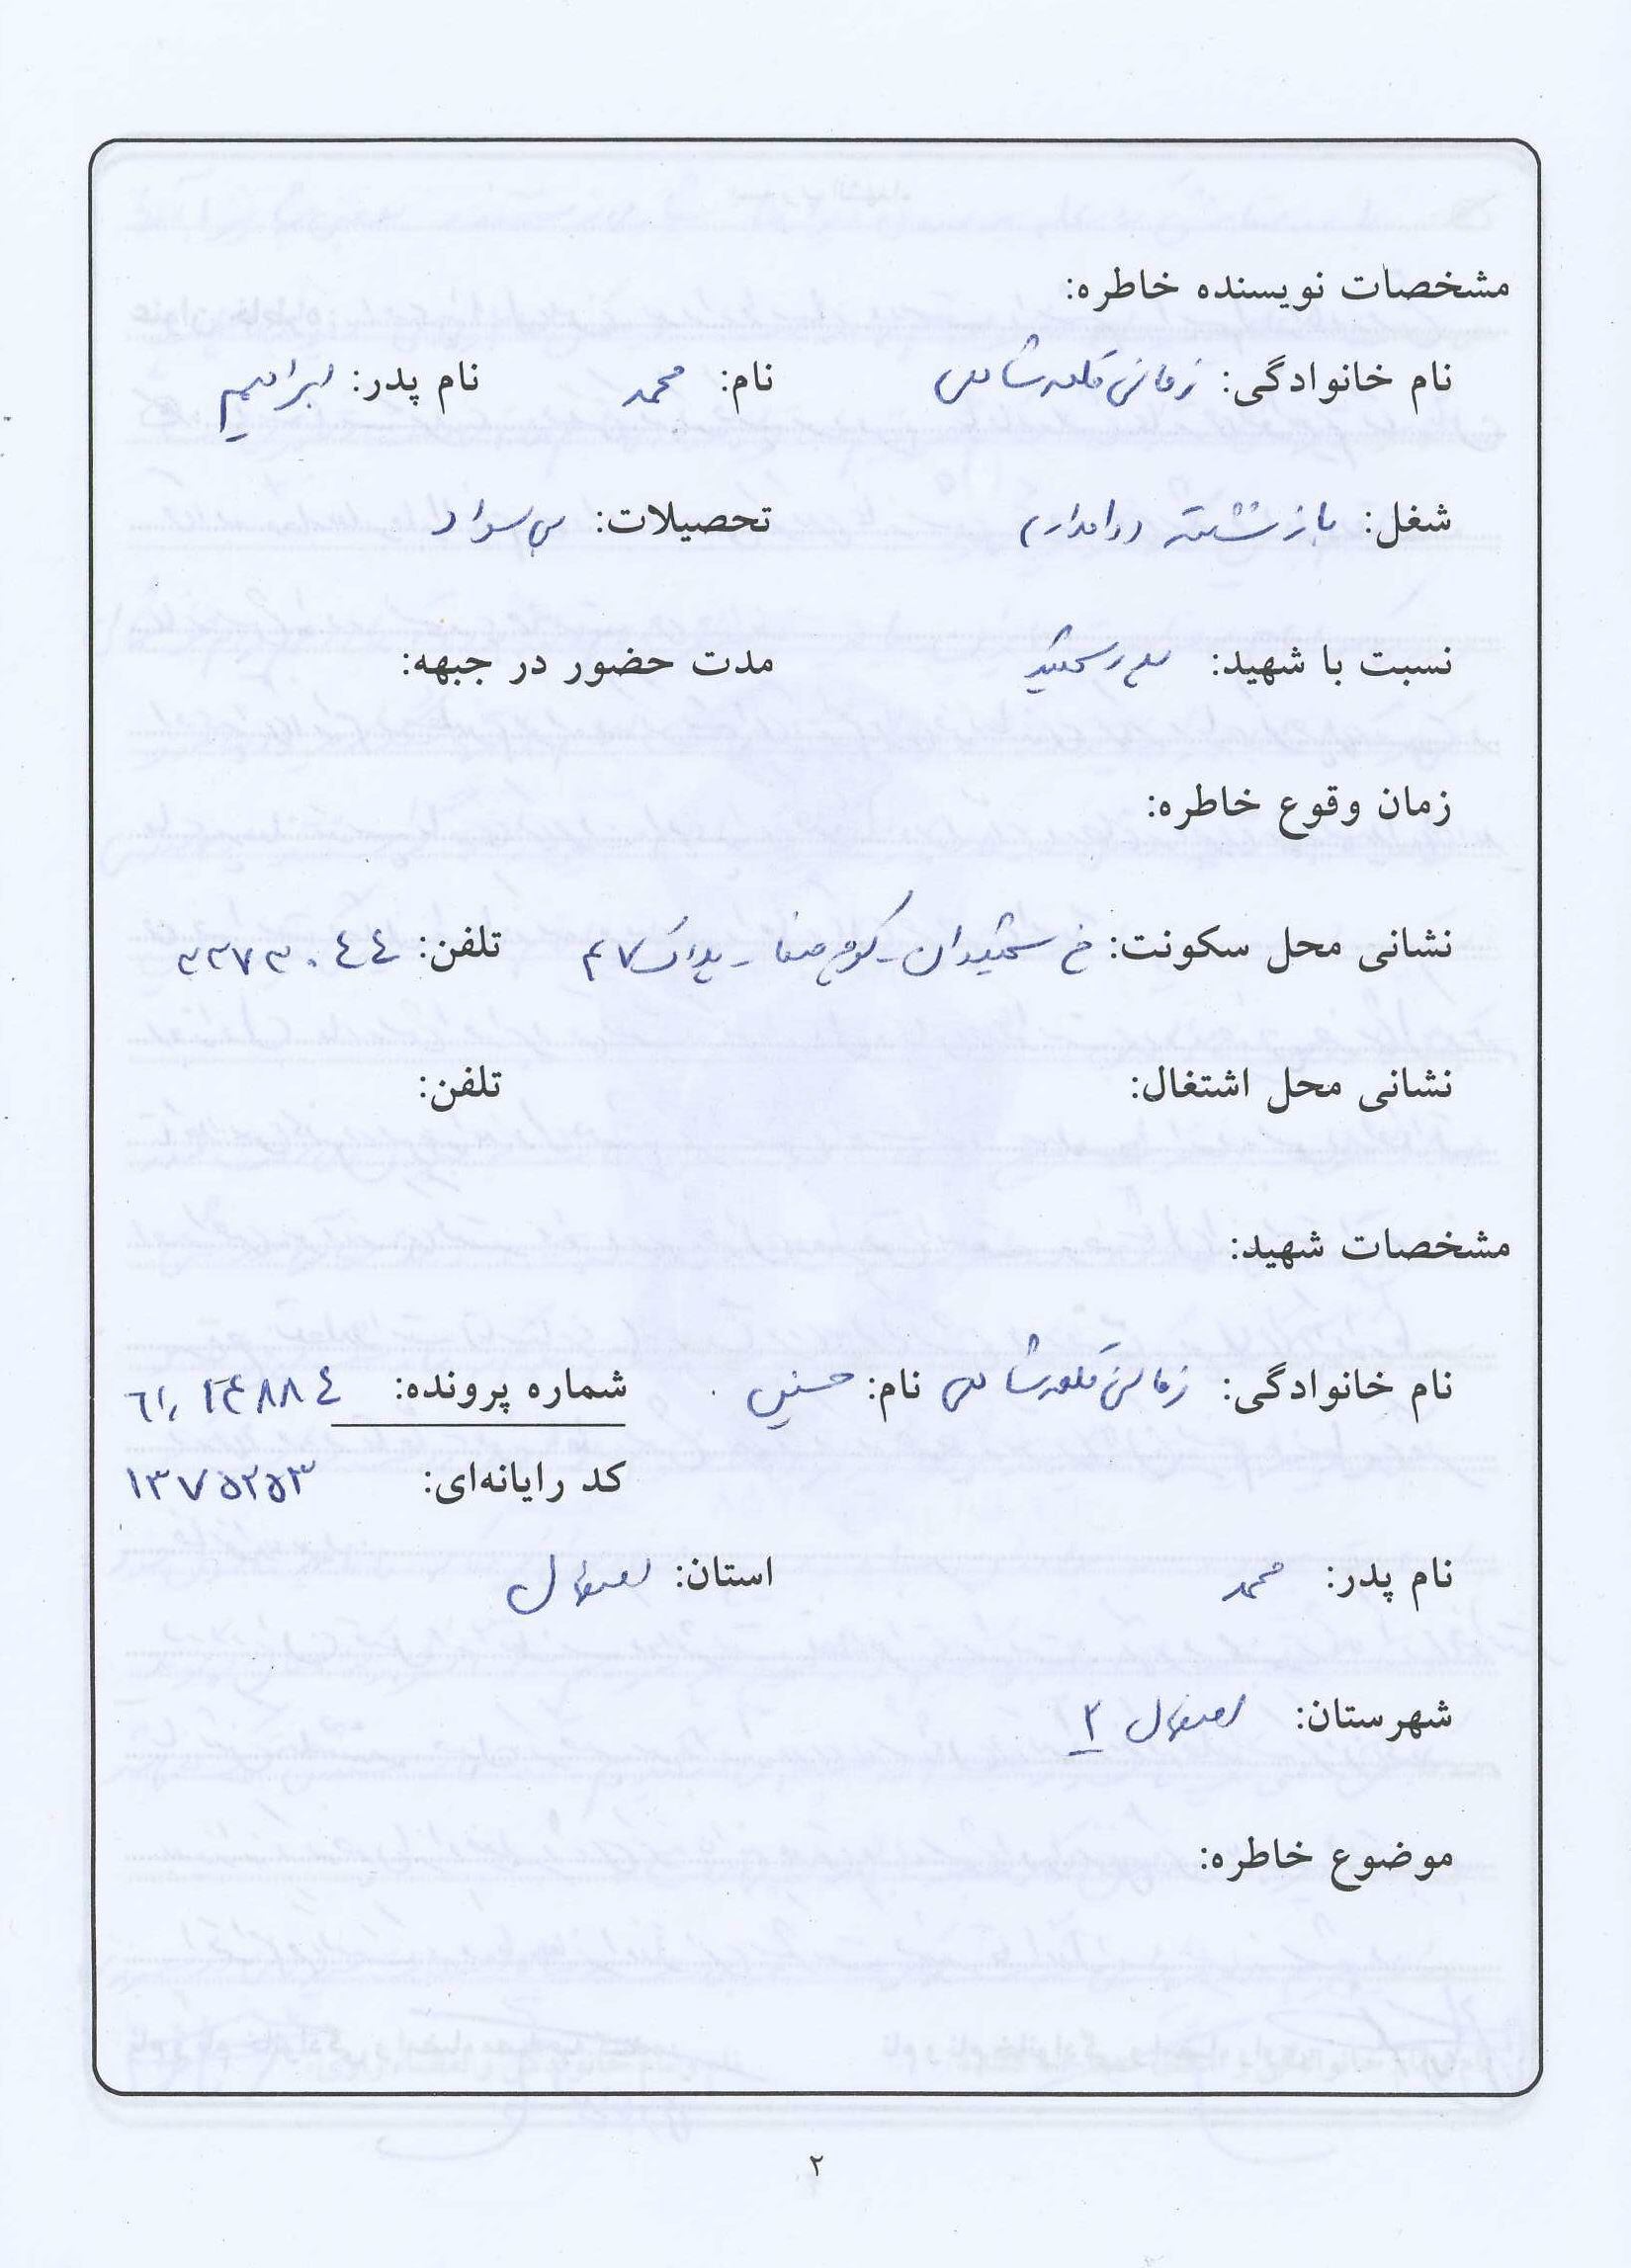 مشخصات نویسنده خاطره:
نام خانوادگی: زمانی قلعه شاهی نام: محمد نام پدر: ابراهیم
شغل: بازنشسته (راهداری) تحصیلات: بی سواد
نسبت با شهید: پدر شهید مدت حضور در جبهه:
زمان وقوع خاطره:
نشانی محل سکونت: خ شهیدان - کوی صفا - پلاک تلفن: ۳۳۷۳۰۴۴
نشانی محل اشتغال: تلفن:
مشخصات شهید:
نام خانوادگی: زمانی قلعه شاهی نام: حسین شماره پرونده:
کد رایانه‌ای: ۱۳۷۵۲۵۳
نام پدر: محمد استان: اصفهان
شهرستان: اصفهان ۲
موضوع خاطره:
۲